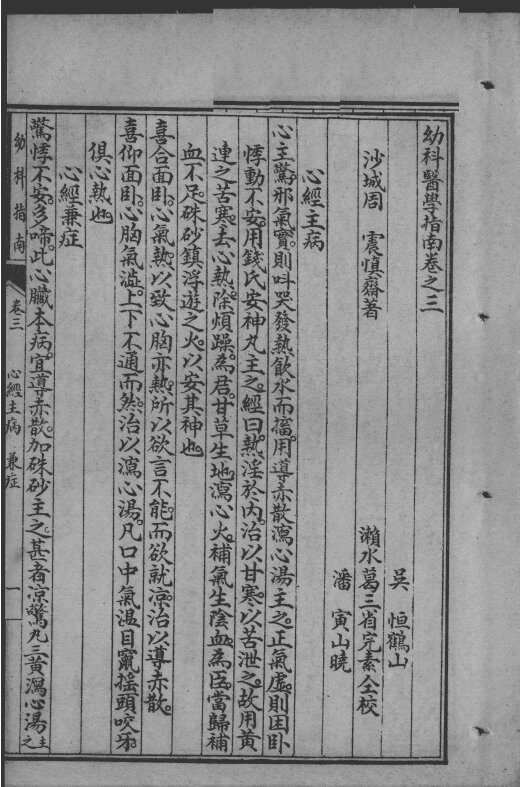 幼科醫學指南卷之三
沙城周　震慎齋著
吳　恒鶴山
瀨水葛三省完素仝校
潘　寅山曉
心經主病
心主驚。邪氣實。則呌哭發熱。飲水而搐。用導赤散瀉心湯主之。正氣虛。則困卧
悸動不安。用錢氏安神丸主之。經曰。熱淫於內。治以甘寒。以苦泄之。故用黃
連之苦寒。去心熱。除煩躁。為君。甘草生地。瀉心火。補氣生陰血。為臣。當歸補
血不足。硃砂鎮浮遊之火。以安其神也。
喜合面卧。心氣熱。以致心胸亦熱。所以欲言不能。而欲就涼。治以導赤散。
喜仰面卧。心胸氣溢。上下不通而然。治以瀉心湯。凡口中氣溫。目竄搖頭咬牙。
俱心熱也。
心經兼症
驚悸不安。多啼。此心臟本病。宜導赤散。加硃砂主之。甚者涼驚丸三黃瀉心湯主之
幼科指南
卷三
心經主病　兼症
一